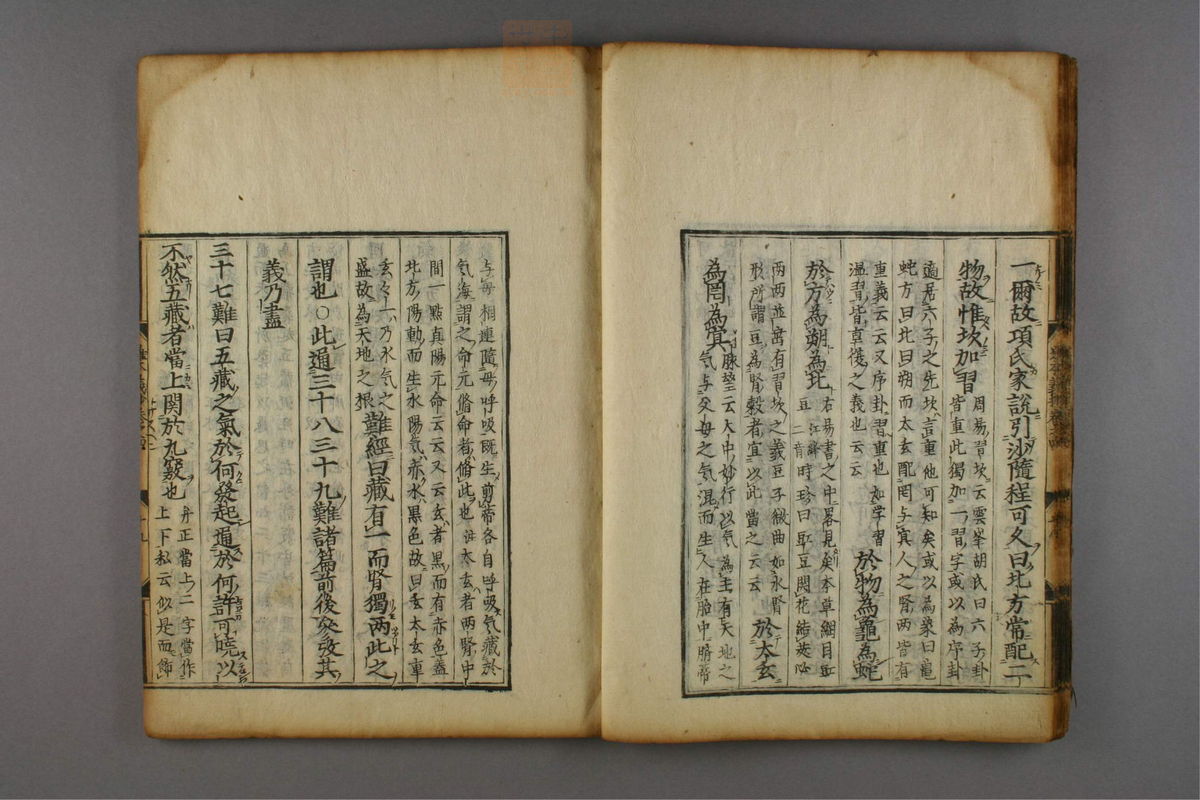 一爾故項氏家說引沙隨程可久曰北方常配二
物故惟坎加習
周易習坎云雲峯胡氏曰六子卦
皆重此獨加一習字或以為序卦
適居六子之先坎言重他可知矣或以為象曰龜
蛇方曰北曰朔而太玄配罔与冥人之腎两皆有
重義云云又序卦習重也如学習
温習皆卓復之義也云云
於物為龜為蛇
於方為朔為北
右易書之中畧見矣本草綱目
豆時珍曰
两两並
有習坎之義豆子微曲如水腎
形所謂豆為腎穀者宜以此當之云云
於太玄
為罔為冥
脉望云人中妙行以气為主有天地之
气与父母之气混而生人在胎中臍帶
与母相連隨母呼吸既生剪帶各自呼吸气藏於
气海謂之命元脩命者脩此也太玄者两腎中
間一點真陽元命云云又云玄者黒而有赤色蓋
北方陽動而生水陽气赤水黒色故曰玄太玄
玄之上乃水气之
盛故為天地之根
難經曰藏有一而腎獨两此之
謂也○此通三十八三十九難諸篇前後參攷其
義乃盡
三十七難曰五藏之氣於何發起通於何許可曉以
不然五藏者當上関於九竅也
弁正當上二字當作
上下私云似是而飾